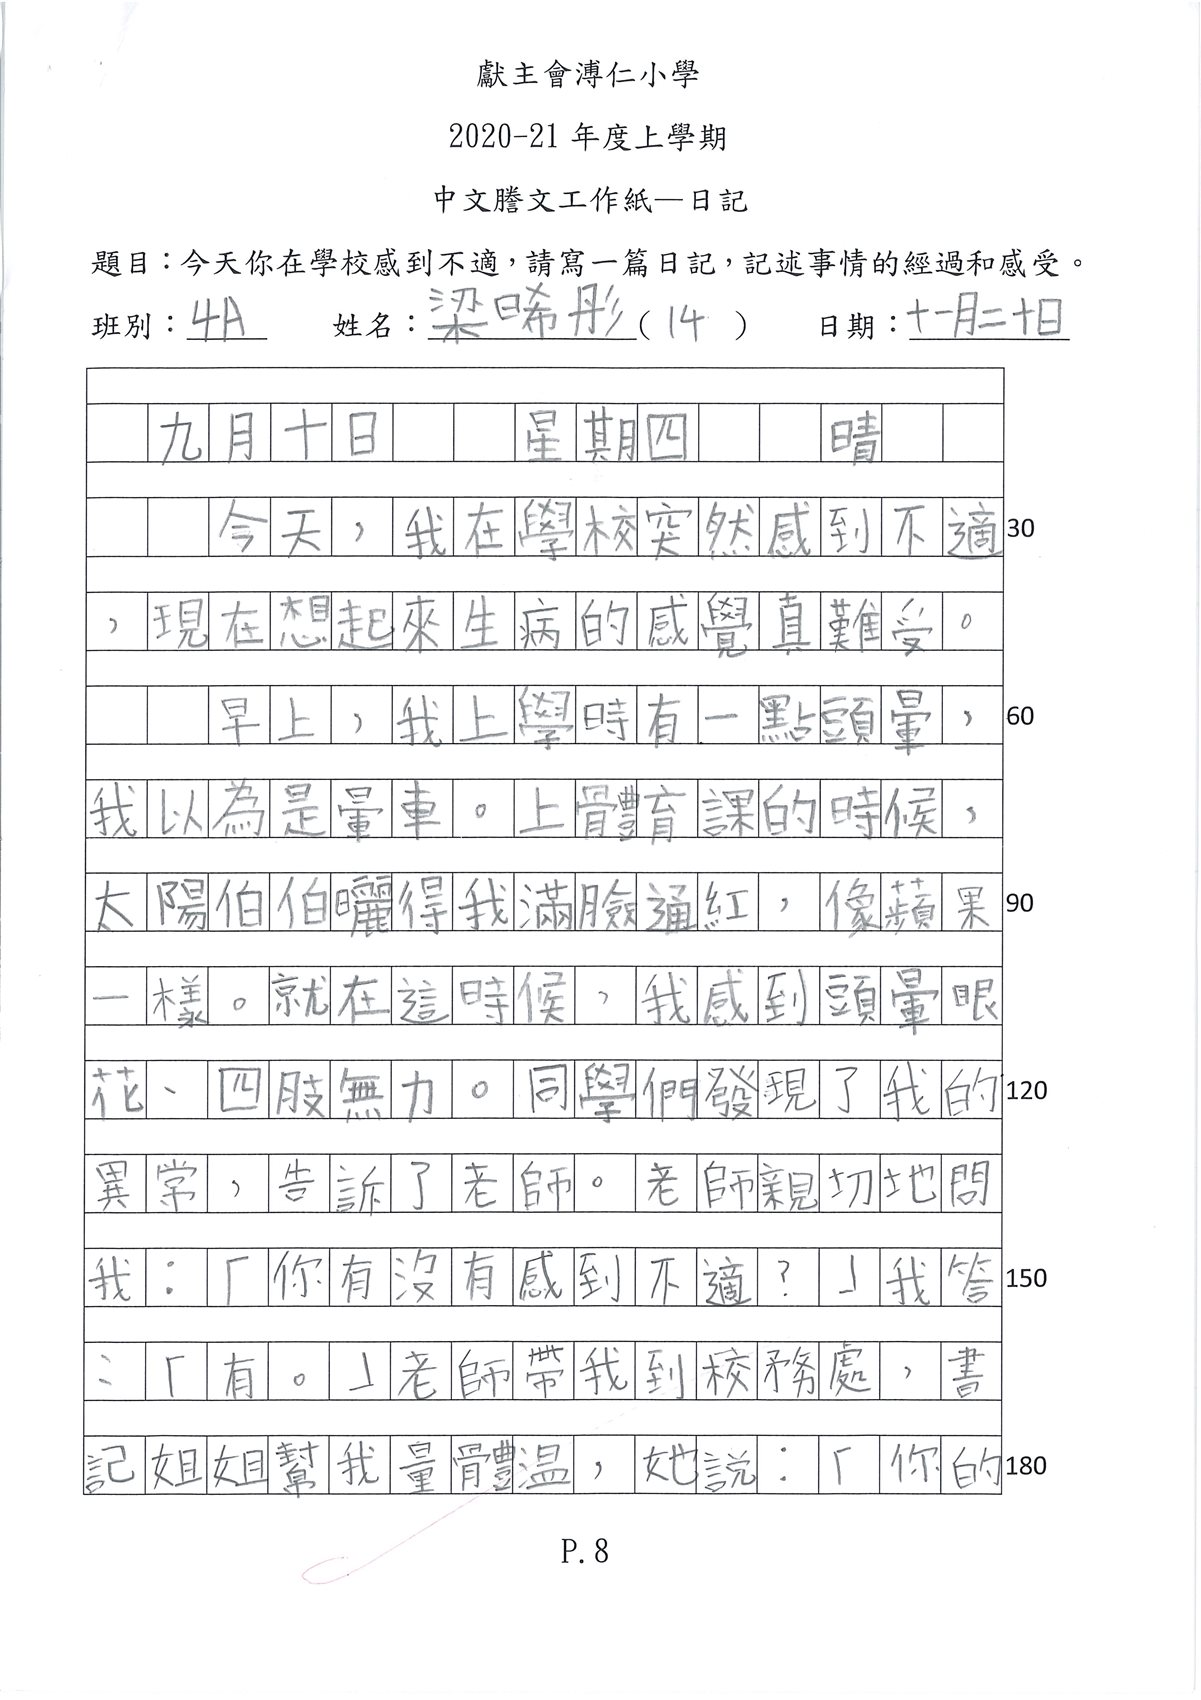 獻主會溥仁小學
2020-21 年度上學期
中文謄文工作紙—日記
題目：今天你在學校感到不適，請寫一篇日記，記述事情的經過和感受。
班別：4A 姓名：梁晞彤（14） 日期：十一月二十日
九月十日 星期四 晴
今天，我在學校突然感到不適 30
，現在想起來生病的感覺真難受。
早上，我上學時有一點頭暈， 60
我以為是暈車。上體育課的時候，
太陽伯伯曬得我滿臉通紅，像蘋果 90
一樣。就在這時候，我感到頭暈眼
花、四肢無力。同學們發現了我的 120
異常，告訴了老師。老師親切地問
我：「你有沒有感到不適？」我答 150
：「有。」老師帶我到校務處，書
記姐姐幫我量體温，她説：「你的 180
P.8